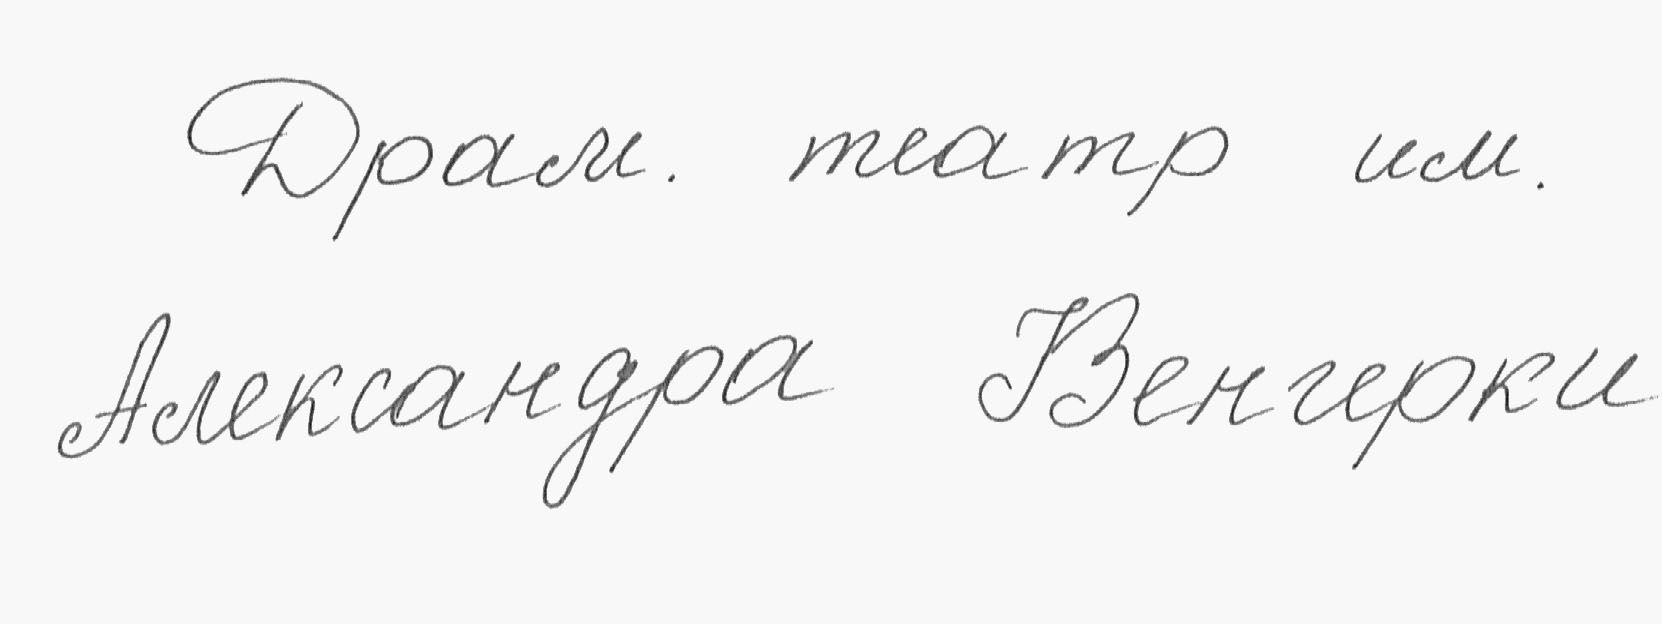 Драм. театр им.
Александра Венгерки